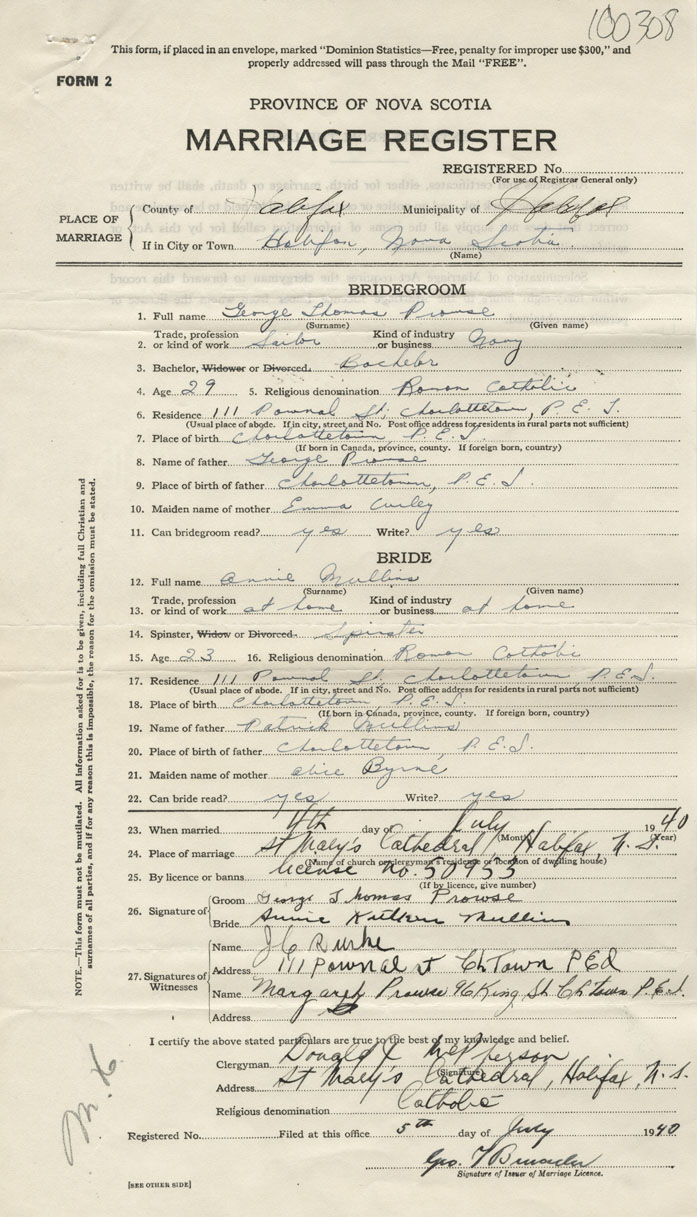 100308
This form, if placed in an envelope, marked "Dominion Statistics—Free, penalty for improper use $300," and
properly addressed will pass through the Mail "FREE".
FORM 2
PROVINCE OF NOVA SCOTIA
MARRIAGE REGISTER
REGISTERED No.
(For use of Registrar General only)
PLACE OF MARRIAGE
County of Halifax Municipality of Halifax
If in City or Town Halifax, Nova Scotia.
(Name)
BRIDEGROOM
1. Full name George Thomas Prowse
(Surname) (Given name)
2. Trade, profession or kind of work Sailor Kind of industry or business Navy
3. Bachelor, Widower or Divorced. Bachelor
4. Age 29 5. Religious denomination Roman Catholic
6. Residence 111 Pownal St. Charlottetown, P.E.I.
(Usual place of abode. If in city, street and No. Post office address for residents in rural parts not sufficient)
7. Place of birth Charlottetown, P.E.I.
(If born in Canada, province, county. If foreign born, country)
8. Name of father George Prowse
9. Place of birth of father Charlottetown, P.E.I.
10. Maiden name of mother Emma Curley
11. Can bridegroom read? yes Write? yes
BRIDE
12. Full name Annie Mullins
(Surname) (Given name)
13. Trade, profession or kind of work at home Kind of industry or business at home
14. Spinster, Widow or Divorced. Spinster
15. Age 23 16. Religious denomination Roman Catholic
17. Residence 111 Pownal St. Charlottetown, P.E.I.
(Usual place of abode. If in city, street and No. Post office address for residents in rural parts not sufficient)
18. Place of birth Charlottetown, P.E.I.
(If born in Canada, province, county. If foreign born, country)
19. Name of father Patrick Mullins
20. Place of birth of father Charlottetown, P.E.I.
21. Maiden name of mother Alice Byrne
22. Can bride read? yes Write? yes
23. When married 4th day of July 1940
(Month) (Year)
24. Place of marriage St Mary's Cathedral, Halifax, N.S.
(Name of church or clergyman's residence or location of dwelling house)
25. By licence or banns license No. 50953
(If by licence, give number)
26. Signature of
Groom George Thomas Prowse
Bride Annie Mullins
27. Signatures of Witnesses
Name J C Burke
Address 111 Pownal st Ch Town PEI
Name Margaret Prowse 96 King St. Ch Town P.E.I.
Address
I certify the above stated particulars are true to the best of my knowledge and belief.
Clergyman Donald McPherson
(Signature)
Address St Mary's Cathedral, Halifax, N.S.
Religious denomination Catholic
Registered No. Filed at this office 5th day of July 1940
Geo.
Signature of Issuer of Marriage Licence.
[SEE OTHER SIDE]
NOTE.—This form must not be mutilated. All information asked for is to be given, including full Christian and
surnames of all parties, and if for any reason this is impossible, the reason for the omission must be stated.